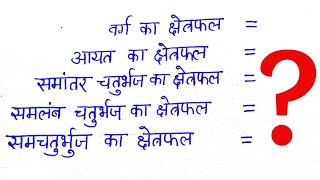 वर्ग का क्षेत्रफल =
आयत का क्षेत्रफल =
समांतर चतुर्भज का क्षेत्रफल =
समलंब चतुर्भज का क्षेत्रफल =
समचतुर्भुज का क्षेत्रफल =
?